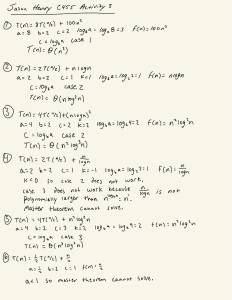 Jason Henry C455 Activity 5
① T(n) = 8T(n/2) + 100n²
a=8 b=2 c=2 log_b a = log_2 8 = 3 f(n) = 100n²
c < log_b a case 1
T(n) = Θ(n³)
② T(n) = 2T(n/2) + n log n
a=2 b=2 c=1 k=1 log_b a = log_2 2 = 1 f(n) = n log n
c = log_b a case 2
T(n) = Θ(n log² n)
③ T(n) = 4T(n/2) + (n log n)²
a=4 b=2 c=2 k=2 log_b a = log_2 4 = 2 f(n) = n² log² n
c = log_b a case 2
T(n) = Θ(n² log³ n)
④ T(n) = 2T(n/2) + n/log n
a=2 b=2 c=1 k=-1 log_b a = log_2 2 = 1 f(n) = n/log n
k<0 so case 2 does not work.
case 3 does not work because n/log n is not
polynomially larger than n^{log_b a} = n.
Master theorem cannot solve.
⑤ T(n) = 4T(n/2) + n³ log³ n
a=4 b=2 c=3 k=3 log_b a = log_2 4 = 2 f(n) = n³ log³ n
c > log_b a case 3
T(n) = Θ(n³ log³ n)
⑥
a<1 so master theorem cannot solve.